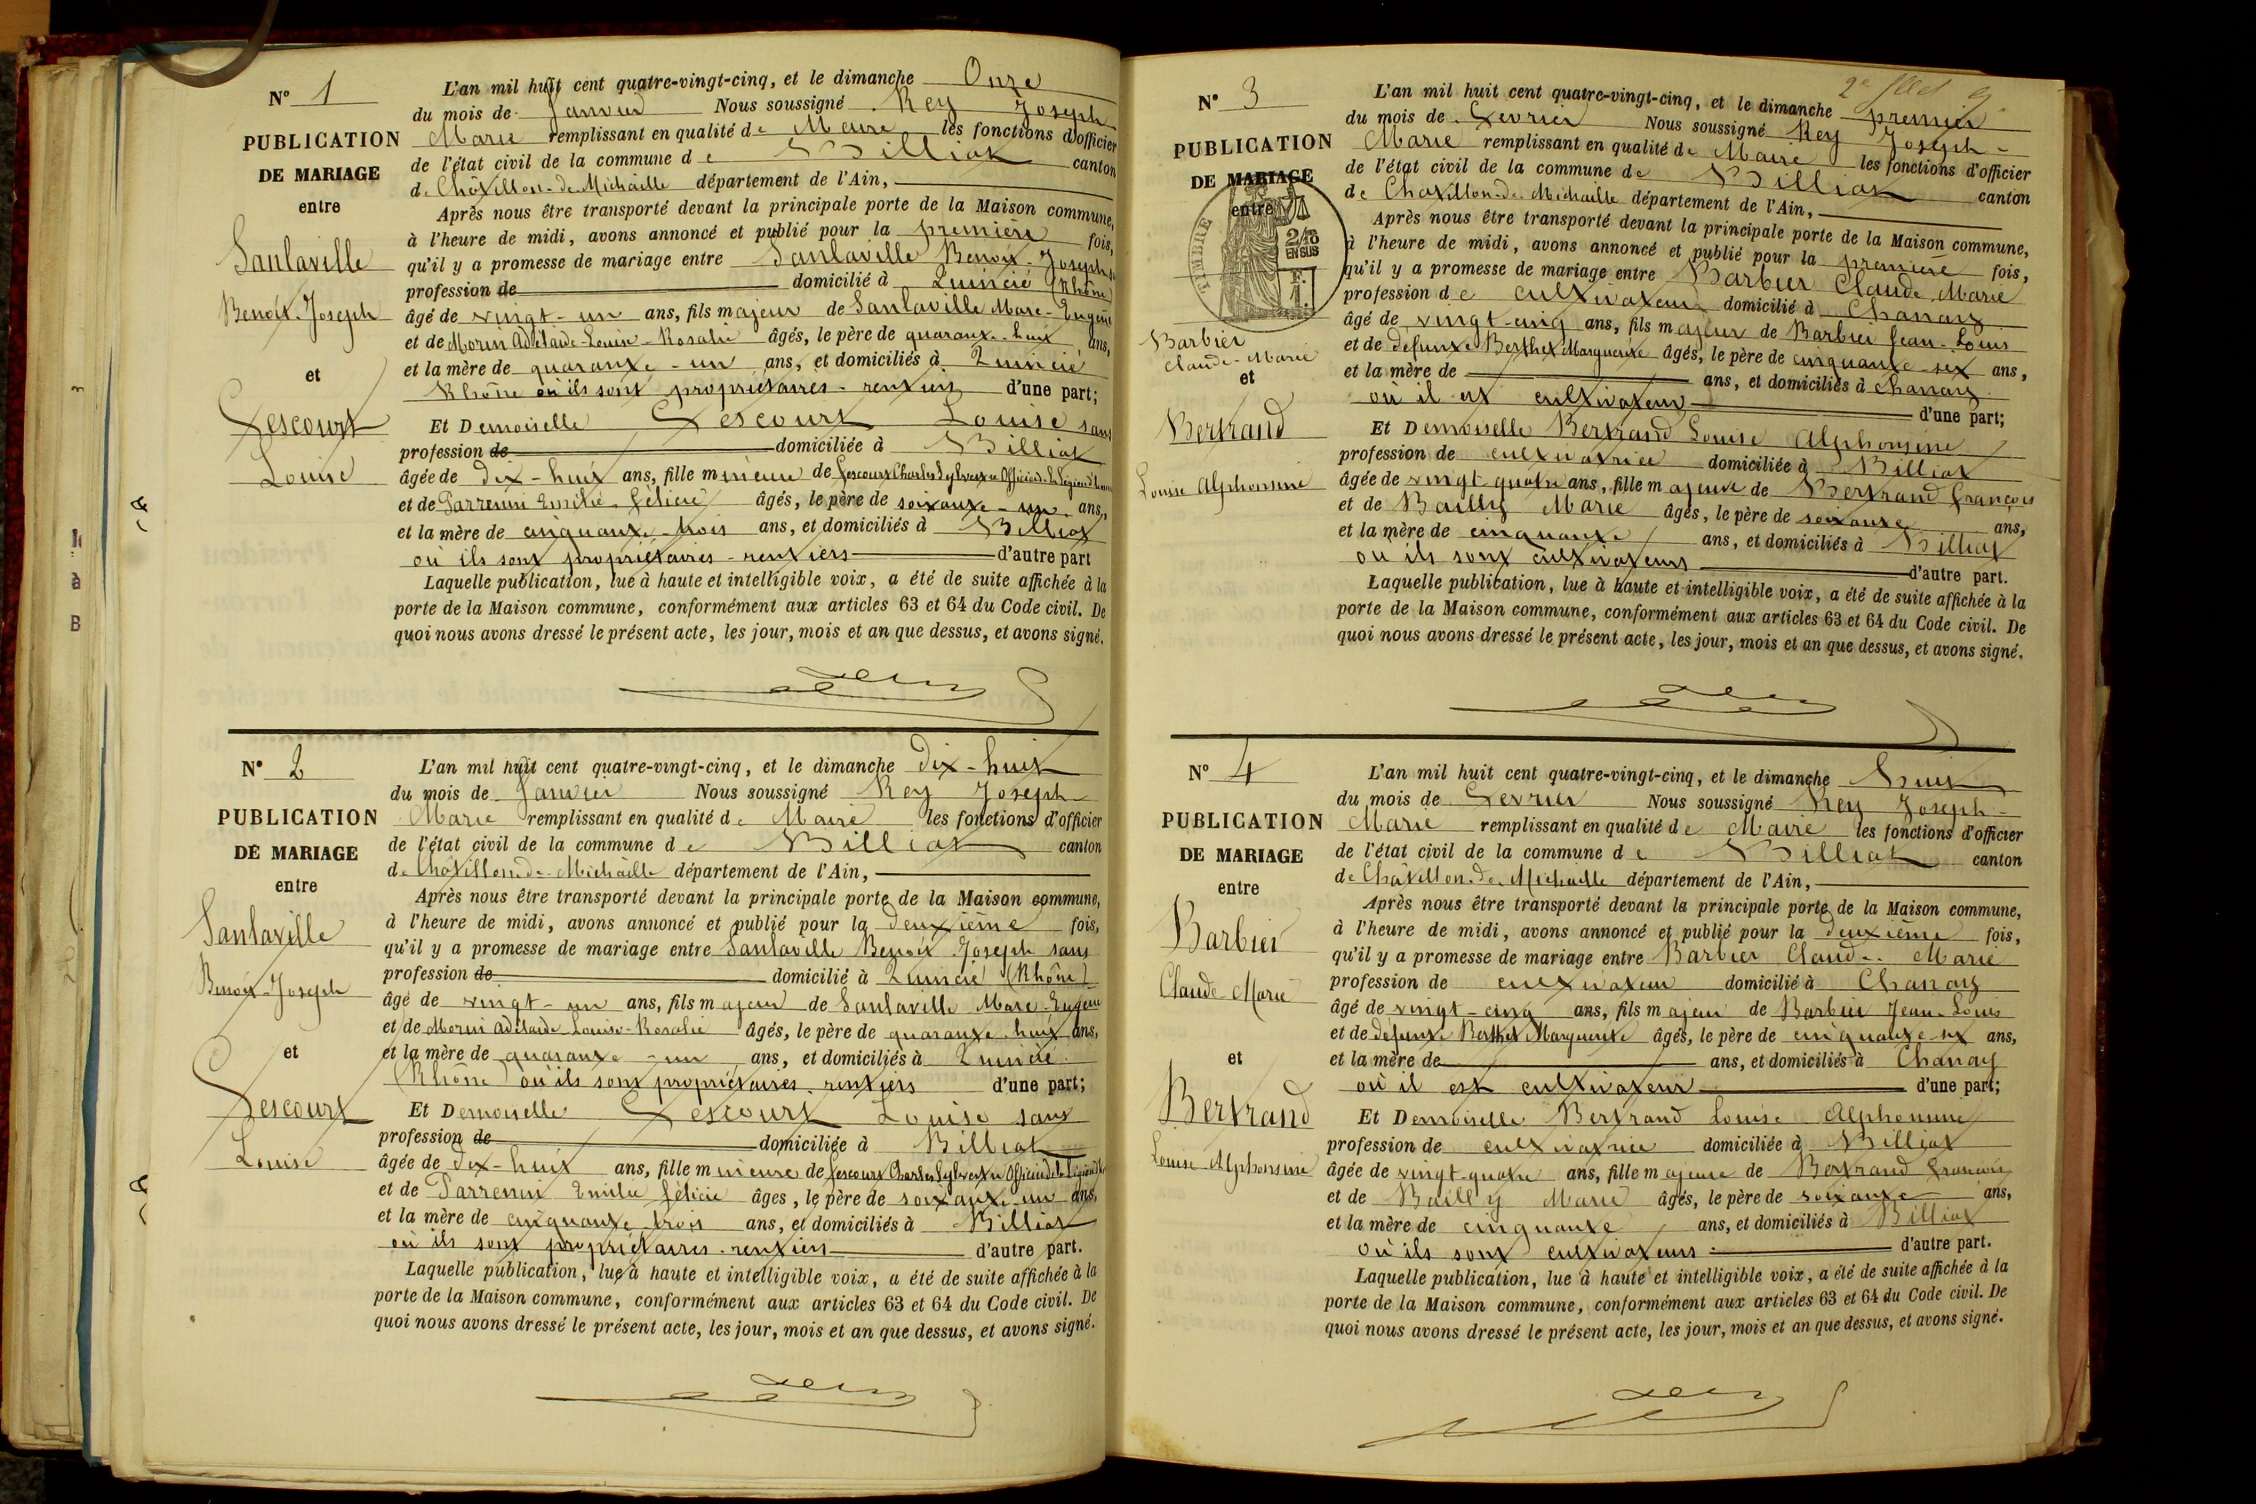 N° 1
PUBLICATION
DE MARIAGE
entre
Sanlaville
Benoit-Joseph
et
Lescourt
Louise
L'an mil huit cent quatre-vingt-cinq, et le dimanche Onze
du mois de Janvier Nous soussigné Rey Joseph-
Marie remplissant en qualité de Maire les fonctions d'officier
de l'état civil de la commune de Billiat canton
de Châtillon-de-Michaille département de l'Ain,
Après nous être transporté devant la principale porte de la Maison commune,
à l'heure de midi, avons annoncé et publié pour la première fois,
qu'il y a promesse de mariage entre Sanlaville Benoit-Joseph
profession de domicilié à Quincié (Rhône)
âgé de vingt-un ans, fils majeur de Sanlaville Marc-Eugène
et de Morin Adélaïde-Louise-Rosalie âgés, le père de quarante-huit ans,
et la mère de quarante-un ans, et domiciliés à Quincié
Rhône où ils sont propriétaires-rentiers d'une part;
Et Demoiselle Lescourt Louise sans
profession de domiciliée à Billiat
âgée de dix-huit ans, fille mineure de Lescourt Charles Sylvestre Officier de la Légion d'honn
et de Parrenin Emilie Félicie âgés, le père de soixante-un ans,
et la mère de cinquante-trois ans, et domiciliés à Billiat
où ils sont propriétaires-rentiers d'autre part
Laquelle publication, lue à haute et intelligible voix, a été de suite affichée à la
porte de la Maison commune, conformément aux articles 63 et 64 du Code civil. De
quoi nous avons dressé le présent acte, les jour, mois et an que dessus, et avons signé.
N° 2
PUBLICATION
DE MARIAGE
entre
Sanlaville
Benoit-Joseph
et
Lescourt
Louise
L'an mil huit cent quatre-vingt-cinq, et le dimanche dix-huit
du mois de Janvier Nous soussigné Rey Joseph-
Marie remplissant en qualité de Maire les fonctions d'officier
de l'état civil de la commune de Billiat canton
de Châtillon-de-Michaille département de l'Ain,
Après nous être transporté devant la principale porte de la Maison commune,
à l'heure de midi, avons annoncé et publié pour la deuxième fois,
qu'il y a promesse de mariage entre Sanlaville Benoit Joseph sans
profession de domicilié à Quincié (Rhône)
âgé de vingt-un ans, fils majeur de Sanlaville Marc-Eugène
et de Morin Adélaïde Louise-Rosalie âgés, le père de quarante-huit ans,
et la mère de quarante-un ans, et domiciliés à Quincié
(Rhône) où ils sont propriétaires-rentiers d'une part;
Et Demoiselle Lescourt Louise sans
profession de domiciliée à Billiat
âgée de dix-huit ans, fille mineure de Lescourt Charles Sylvestre Officier de la Légion d'h
et de Parrenin Emilie Félicie âgés, le père de soixante-un ans,
et la mère de cinquante-trois ans, et domiciliés à Billiat
où ils sont propriétaires-rentiers d'autre part.
Laquelle publication, lue à haute et intelligible voix, a été de suite affichée à la
porte de la Maison commune, conformément aux articles 63 et 64 du Code civil. De
quoi nous avons dressé le présent acte, les jour, mois et an que dessus, et avons signé.
N° 3
PUBLICATION
DE MARIAGE
entre
TIMBRE
2/10
EN SUS
F.
1.
Barbier
Claude-Marie
et
Bertrand
Louise Alphonsine
L'an mil huit cent quatre-vingt-cinq, et le dimanche premier
du mois de Février Nous soussigné Rey Joseph-
Marie remplissant en qualité de Maire les fonctions d'officier
de l'état civil de la commune de Billiat canton
de Châtillon-de-Michaille département de l'Ain,
Après nous être transporté devant la principale porte de la Maison commune,
à l'heure de midi, avons annoncé et publié pour la première fois,
qu'il y a promesse de mariage entre Barbier Claude Marie
profession de cultivateur domicilié à Chanay
âgé de vingt-cinq ans, fils majeur de Barbier Jean-Louis
et de defunte Berthet Marguerite âgés, le père de cinquante-six ans,
et la mère de ans, et domiciliés à Chanay
où il est cultivateur d'une part;
Et Demoiselle Bertrand Louise Alphonsine
profession de cultivatrice domiciliée à Billiat
âgée de vingt-quatre ans, fille majeure de Bertrand François
et de Bailly Marie âgés, le père de soixante ans,
et la mère de cinquante ans, et domiciliés à Billiat
où ils sont cultivateurs d'autre part.
Laquelle publication, lue à haute et intelligible voix, a été de suite affichée à la
porte de la Maison commune, conformément aux articles 63 et 64 du Code civil. De
quoi nous avons dressé le présent acte, les jour, mois et an que dessus, et avons signé.
N° 4
PUBLICATION
DE MARIAGE
entre
Barbier
Claude-Marie
et
Bertrand
Louise-Alphonsine
L'an mil huit cent quatre-vingt-cinq, et le dimanche huit
du mois de Février Nous soussigné Rey Joseph-
Marie remplissant en qualité de Maire les fonctions d'officier
de l'état civil de la commune de Billiat canton
de Châtillon-de-Michaille département de l'Ain,
Après nous être transporté devant la principale porte de la Maison commune,
à l'heure de midi, avons annoncé et publié pour la deuxième fois,
qu'il y a promesse de mariage entre Barbier Claude-Marie
profession de cultivateur domicilié à Chanay
âgé de vingt-cinq ans, fils majeur de Barbier Jean-Louis
et de defunte Berthet Marguerite âgés, le père de cinquante-six ans,
et la mère de ans, et domiciliés à Chanay
où il est cultivateur d'une part;
Et Demoiselle Bertrand Louise Alphonsine
profession de cultivatrice domiciliée à Billiat
âgée de vingt-quatre ans, fille majeure de Bertrand François
et de Bailly Marie âgés, le père de soixante ans,
et la mère de cinquante ans, et domiciliés à Billiat
où ils sont cultivateurs d'autre part.
Laquelle publication, lue à haute et intelligible voix, a été de suite affichée à la
porte de la Maison commune, conformément aux articles 63 et 64 du Code civil. De
quoi nous avons dressé le présent acte, les jour, mois et an que dessus, et avons signé.